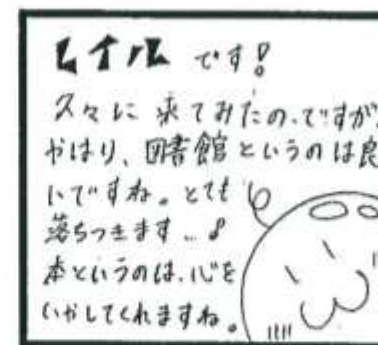 レイルです！
久々に来てみたのですが
やはり、図書館というのは良
いですね。とても
落ちつきます…♪
本というのは、心を
いやしてくれますね。